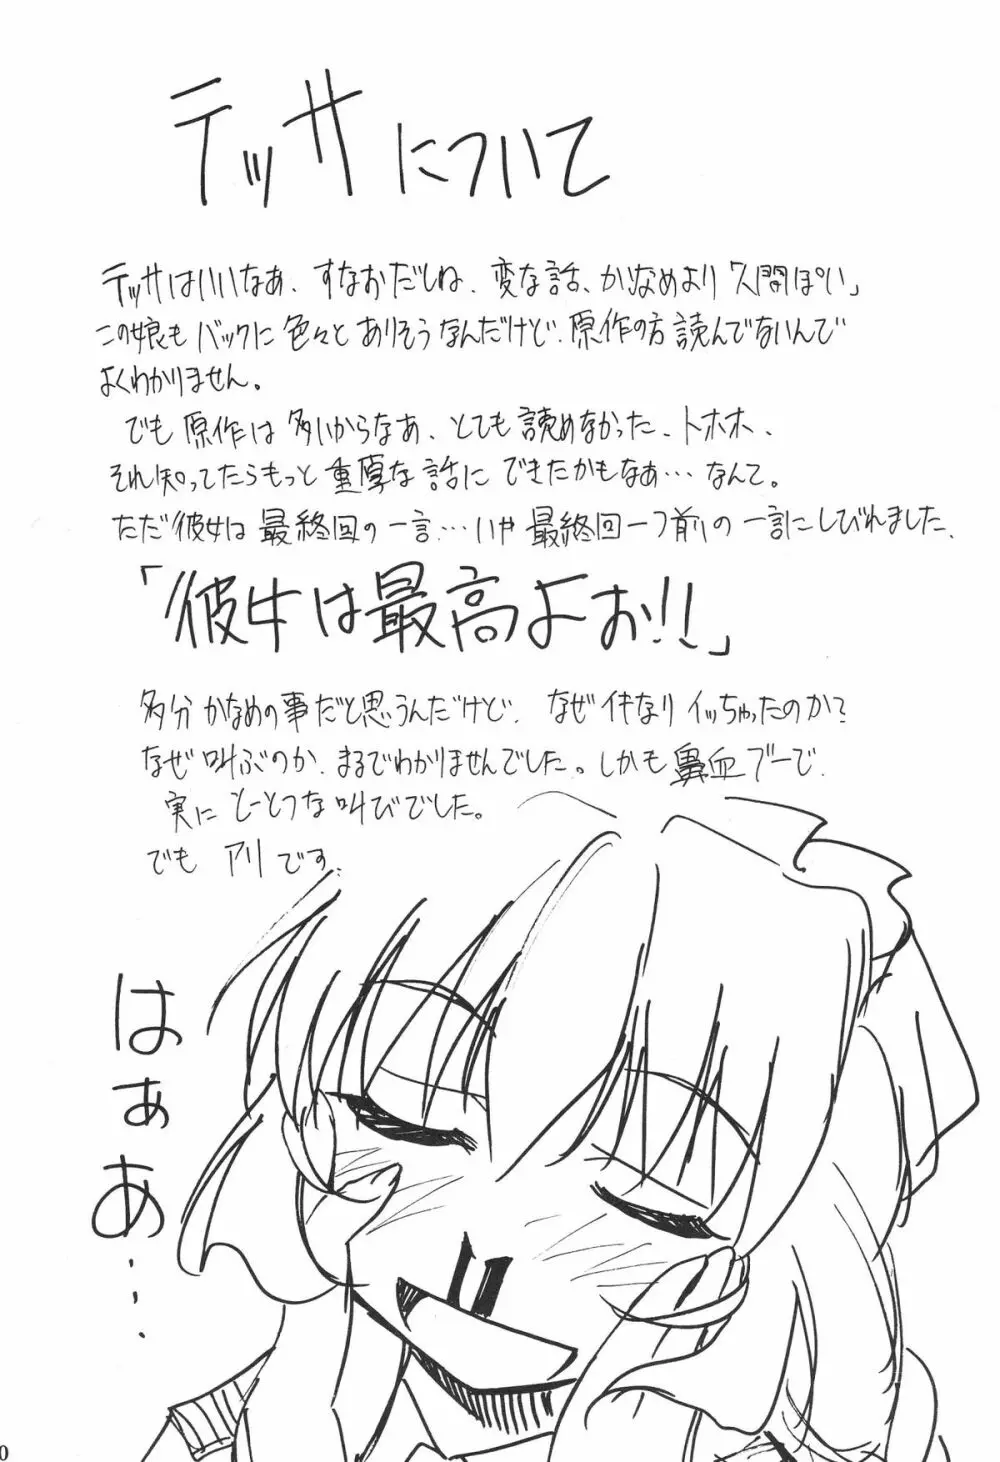 テッサについて
テッサはいいなぁ、すなおだしね、変な話、かなめより「人間ぽい」
この娘もバックに色々とありそうなんだけど、原作の方読んでないんで
よくわかりません。
でも原作は多いからなぁ、とても読めなかった、トホホ、
それ知ってたらもっと重厚な話にできたかもなぁ…なんて。
ただ彼女は最終回の一言…いや最終回一つ前の一言にしびれました。
「彼女は最高よぉ!!」
多分かなめの事だと思うんだけど、なぜイキなりイッちゃったのか?
なぜ叫ぶのか、まるでわかりませんでした。しかも鼻血ブーで、
実にとーとつな叫びでした。
でもアリです。
はぁぁ…
0